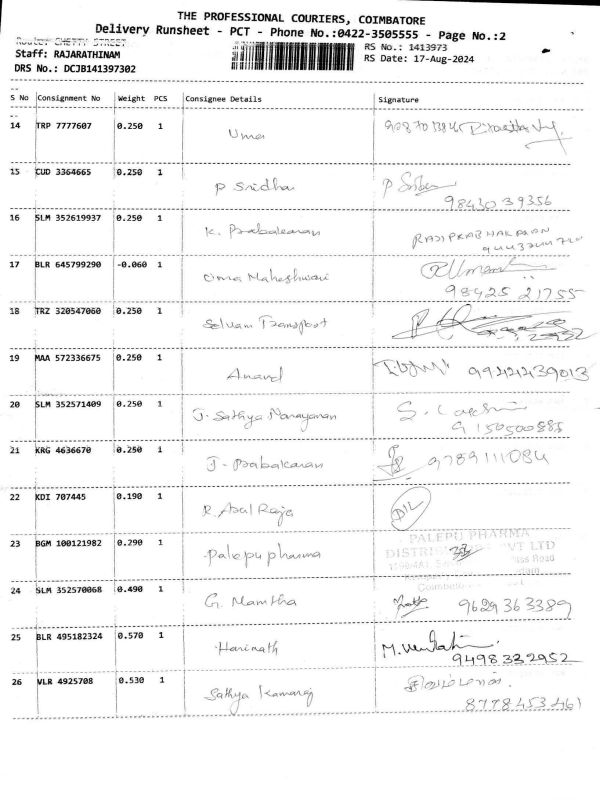 THE PROFESSIONAL COURIERS, COIMBATORE
Delivery Runsheet - PCT - Phone No.:0422-3505555 - Page No.:2
Route: CHETTY STREET
Staff: RAJARATHINAM
RS No.: 1413973
DRS No.: DCJB141397302
RS Date: 17-Aug-2024
--
S No Consignment No Weight PCS Consignee Details Signature
--
14 TRP 7777607 0.250 1 Uma
15 CUD 3364665 0.250 1 P Sridhar P
98430 39356
16 SLM 352619937 0.250 1 K. Prabakaran RAJIPRABHAKARAN
17 BLR 645799290 -0.060 1 Uma Maheshwari
98425 21755
18 TRZ 320547060 0.250 1 Selvam Transport
19 MAA 572336675 0.250 1 Anand 99424439013
20 SLM 352571409 0.250 1 J. Sathya Narayanan S.
9150500885
21 KRG 4636670 0.250 1 J. Prabakaran 9789111084
22 KDI 707445 0.190 1 R. Asal Raja DIL
23 BGM 100121982 0.290 1 Palepu pharma PALEPU PHARMA
DISTRI PVT LTD
Road
Coimbato
24 SLM 352570068 0.490 1 G. Mamtha 9629363389
25 BLR 495182324 0.570 1 Harinath M.
9498332952
26 VLR 4925708 0.530 1 Sathya Kamaraj
8778453461